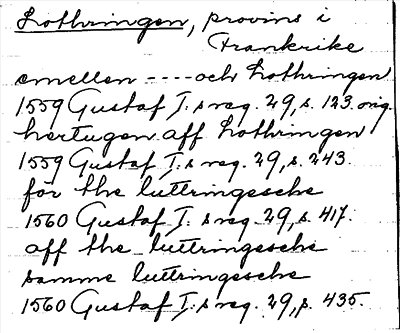 Lothringen, provins i
Frankrike
emellen ---- och Lothringen
1559 Gustaf I:s reg. 29, s. 123. orig.
hertugen aff Lothringen
1559 Gustaf I:s reg. 29, s. 243.
för the luttringesche
1560 Gustaf I:s reg. 29, s. 417.
aff the luttringesche
samme luttringesche
1560 Gustaf I:s reg. 29, s. 435.